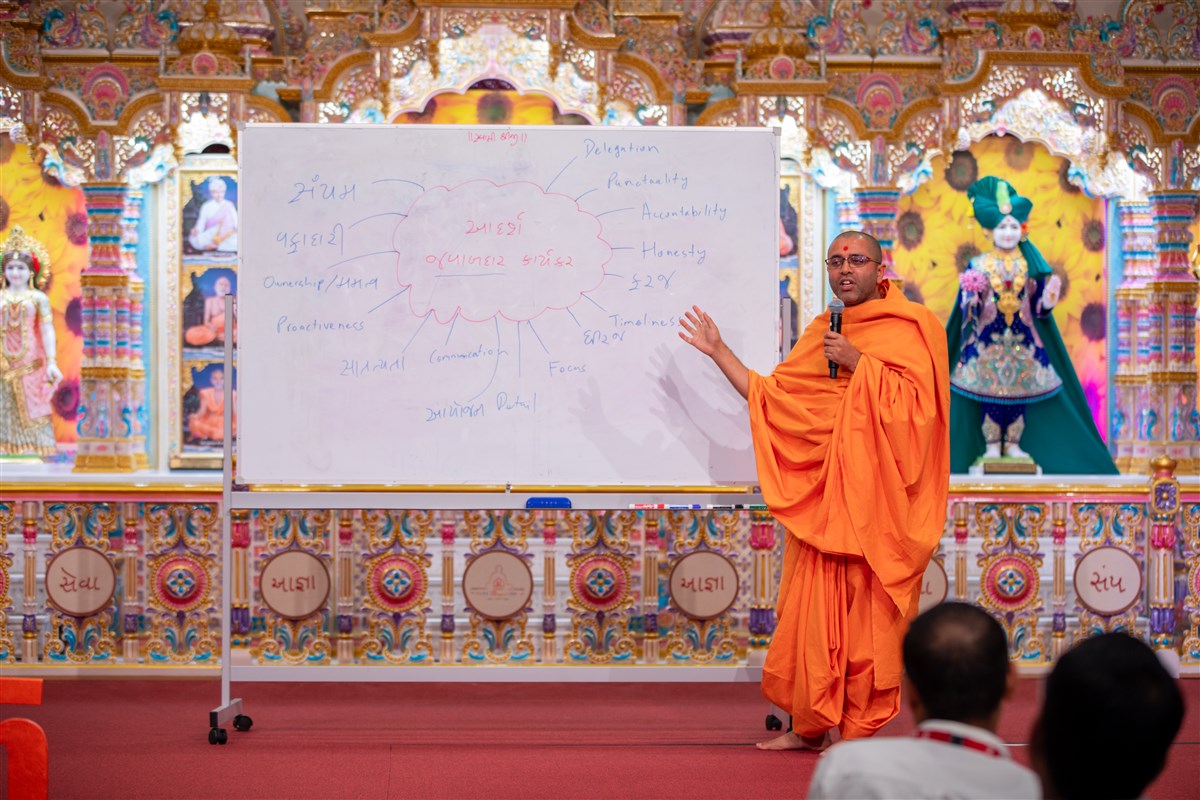 Delegation
સંયમ
Punctuality
વફાદારી
આદર્શ
Accountability
જવાબદાર કાર્યકર
Honesty
Ownership/મમત્વ
ફરજ
Proactiveness
Timeliness
ધીરજ
સાતત્યતા
Communication
Focus
આયોજન
Detail
સેવા
આજ્ઞા
આજ્ઞા
સંપ